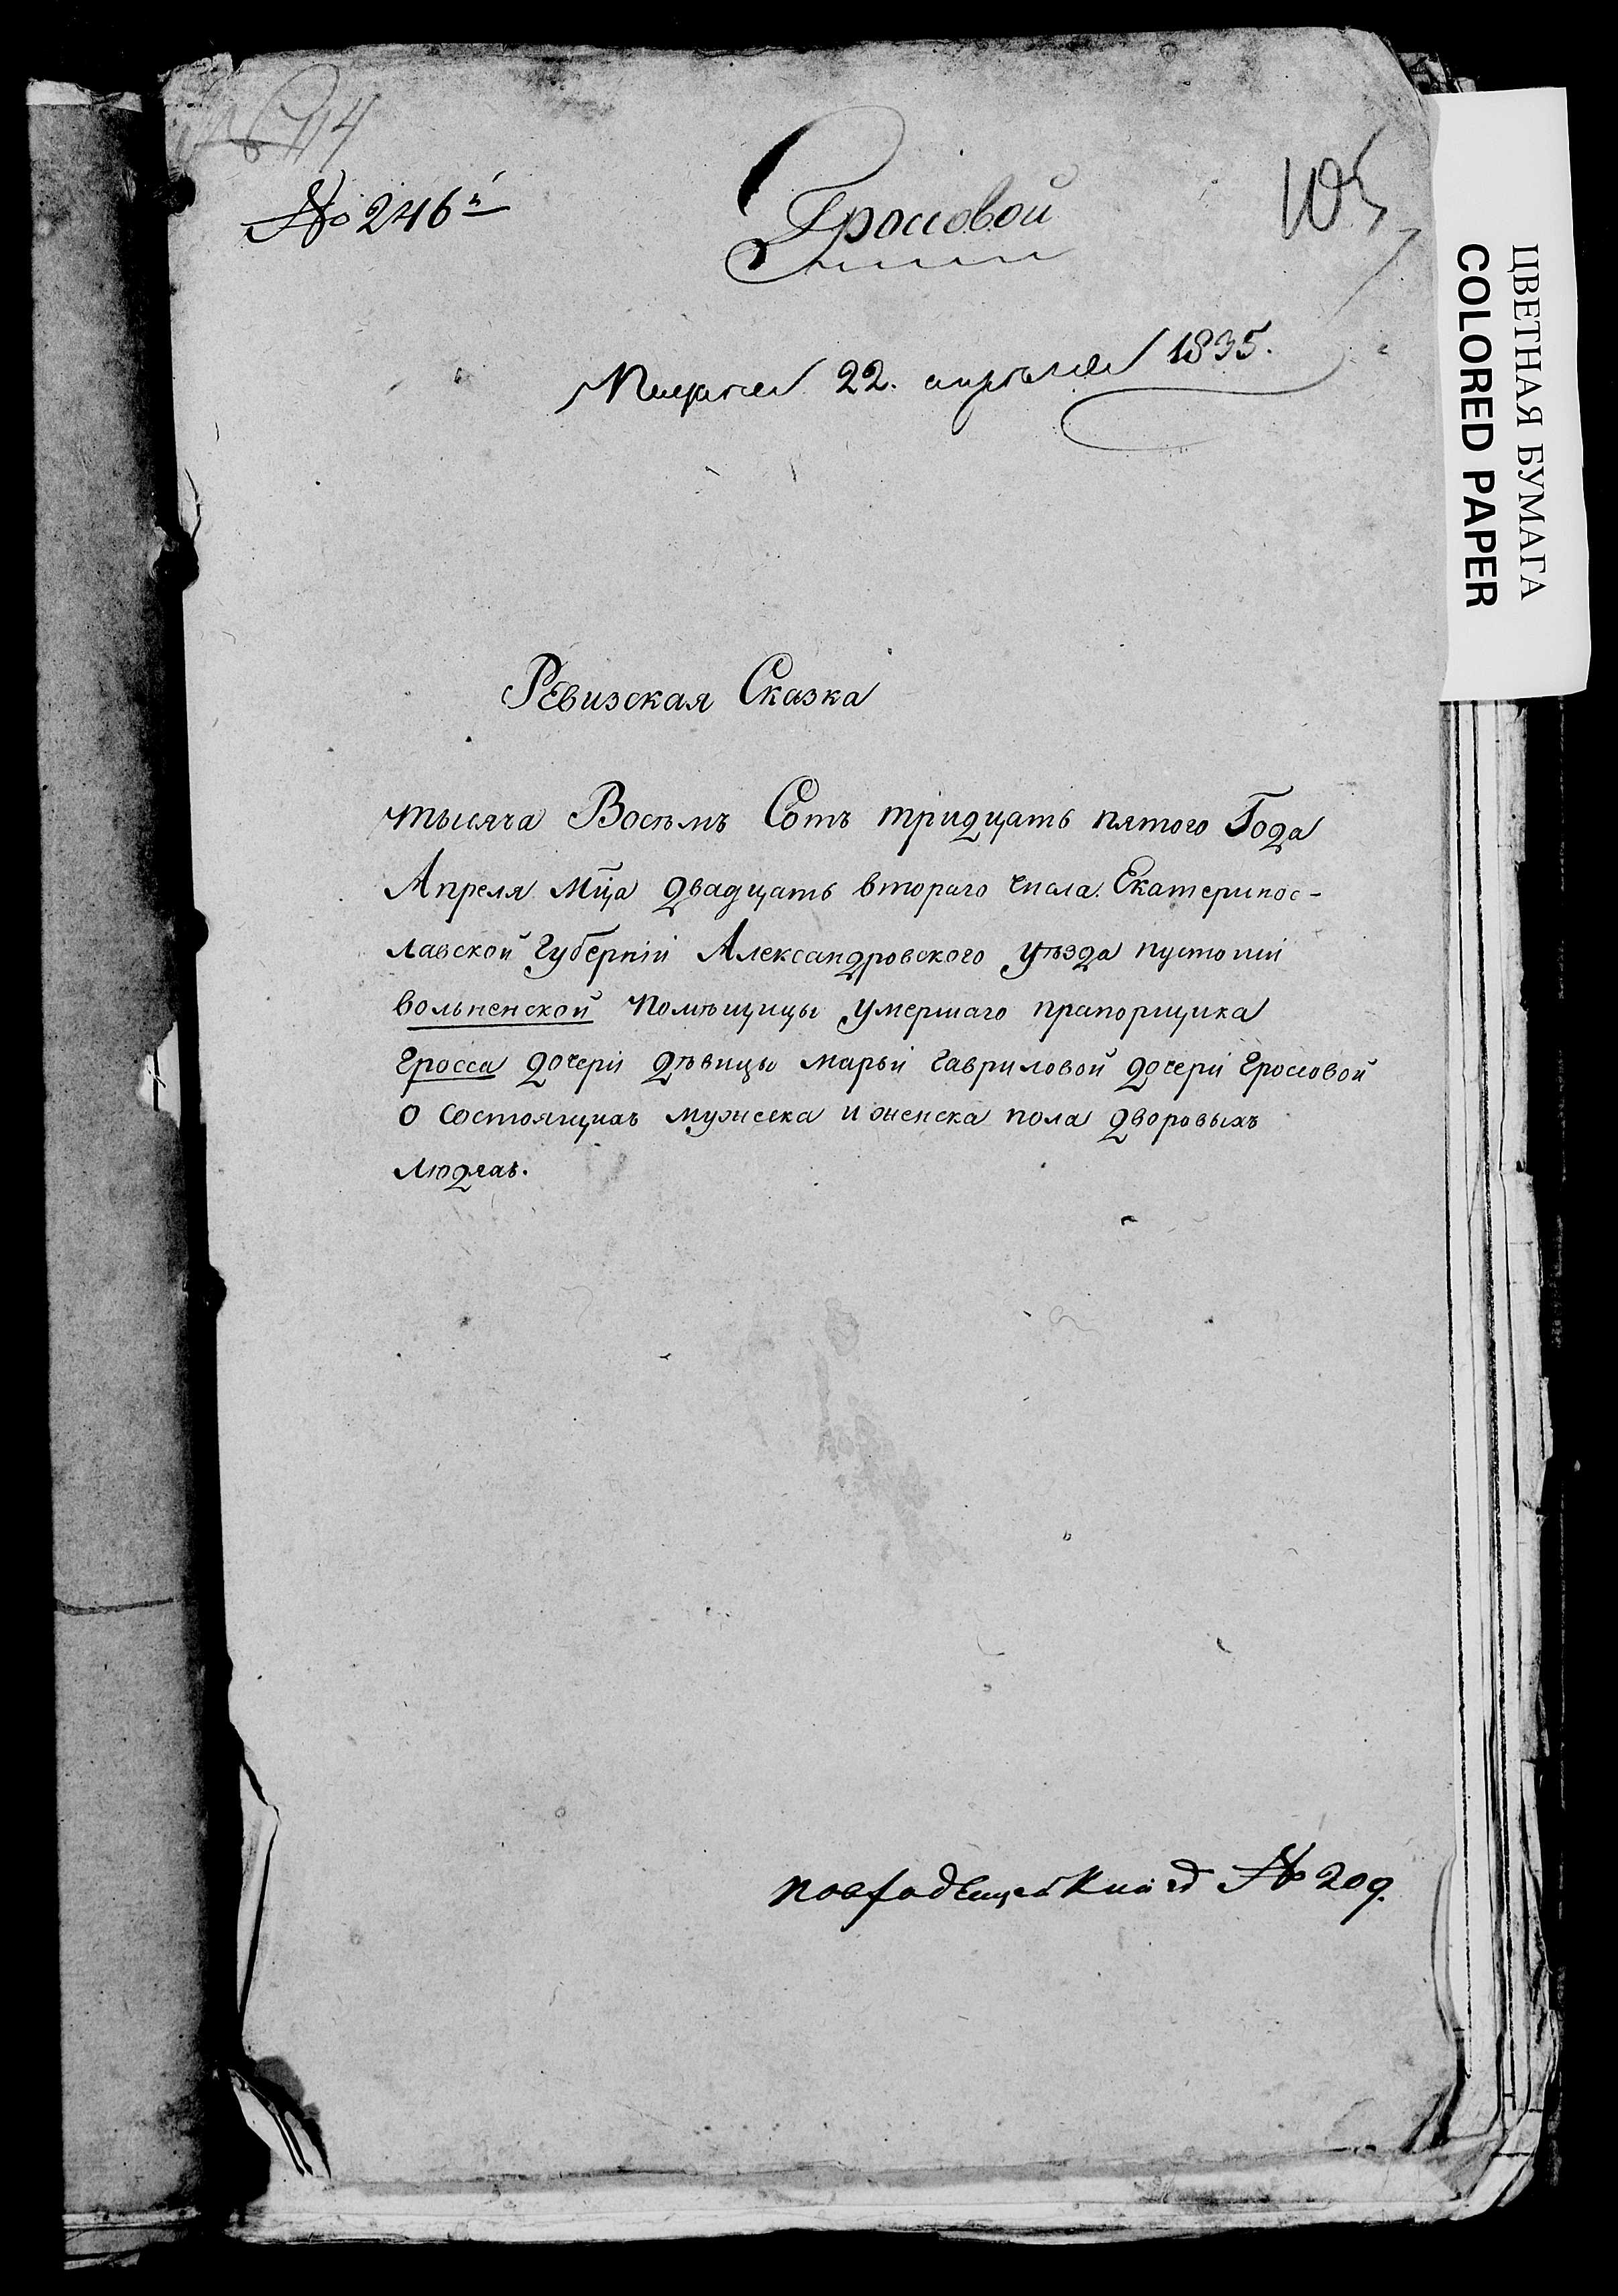 114
№ 246й
Гроссовой
105
22. апреля 1835.
ЦВЕТНАЯ БУМАГА
COLORED PAPER
Ревизская Сказка
тысяча Восѣмъ Сотъ тридцать пятого Года
Апреля мц̃а двадцать втораго числа. Екатеринос-
лавской Губерніи Александровского уѣзда пустоши
вольненской помѣщицы умершаго прапорщика
Гросса дочери дѣвицы марьи Гавриловой дочери Гроссовой
о состоящихъ мужеска и женска пола дворовыхъ
людяхъ.
№ 209.